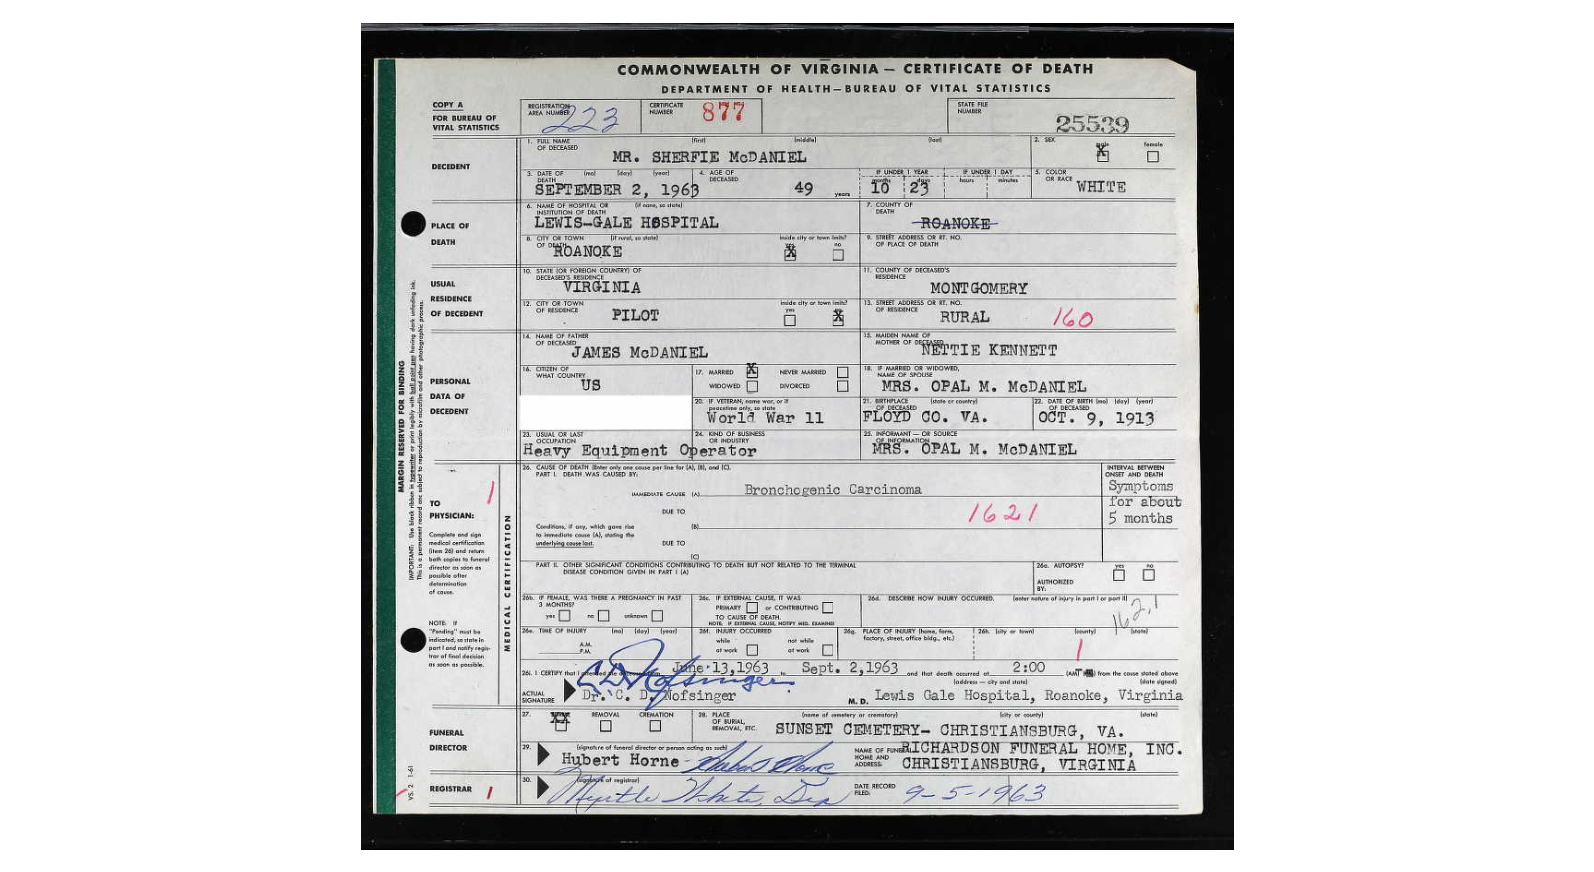 COMMONWEALTH OF VIRGINIA — CERTIFICATE OF DEATH
DEPARTMENT OF HEALTH—BUREAU OF VITAL STATISTICS
COPY A
FOR BUREAU OF
VITAL STATISTICS
REGISTRATION
AREA NUMBER 223
CERTIFICATE
NUMBER 877
STATE FILE
NUMBER 25539
DECEDENT
1. FULL NAME (first) (middle) (last)
OF DECEASED
MR. SHERFIE McDANIEL
2. SEX
male X female
3. DATE OF (mo) (day) (year)
DEATH
SEPTEMBER 2, 1963
4. AGE OF
DECEASED
49 years
IF UNDER 1 YEAR
months days
10 23
IF UNDER 1 DAY
hours minutes
5. COLOR
OR RACE WHITE
PLACE OF
DEATH
6. NAME OF HOSPITAL OR (if none, so state)
INSTITUTION OF DEATH
LEWIS-GALE HOSPITAL
7. COUNTY OF
DEATH
ROANOKE
8. CITY OR TOWN (if rural, so state)
OF DEATH
ROANOKE
inside city or town limits?
yes X no
9. STREET ADDRESS OR RT. NO.
OF PLACE OF DEATH
USUAL
RESIDENCE
OF DECEDENT
10. STATE (OR FOREIGN COUNTRY) OF
DECEASED'S RESIDENCE
VIRGINIA
11. COUNTY OF DECEASED'S
RESIDENCE
MONTGOMERY
12. CITY OR TOWN
OF RESIDENCE
PILOT
inside city or town limits?
yes no X
13. STREET ADDRESS OR RT. NO.
OF RESIDENCE
RURAL 160
PERSONAL
DATA OF
DECEDENT
14. NAME OF FATHER
OF DECEASED
JAMES McDANIEL
15. MAIDEN NAME OF
MOTHER OF DECEASED
NETTIE KENNETT
16. CITIZEN OF
WHAT COUNTRY
US
17. MARRIED X NEVER MARRIED
WIDOWED DIVORCED
18. IF MARRIED OR WIDOWED,
NAME OF SPOUSE
MRS. OPAL M. McDANIEL
20. IF VETERAN, name war, or if
peacetime only, so state
World War 11
21. BIRTHPLACE (state or country)
OF DECEASED
FLOYD CO. VA.
22. DATE OF BIRTH (mo) (day) (year)
OF DECEASED
OCT. 9, 1913
23. USUAL OR LAST
OCCUPATION
24. KIND OF BUSINESS
OR INDUSTRY
Heavy Equipment Operator
25. INFORMANT — OR SOURCE
OF INFORMATION
MRS. OPAL M. McDANIEL
MARGIN RESERVED FOR BINDING
IMPORTANT: Use black ribbon in typewriter or print legibly with ball point pen having dark unfading ink.
This is a permanent record and subject to reproduction by microfilm and other photographic process.
1
TO
PHYSICIAN:
Complete and sign
medical certification
(item 26) and return
both copies to funeral
director as soon as
possible after
determination
of cause.
NOTE: If
"Pending" must be
indicated, so state in
part I and notify regis-
trar of final decision
as soon as possible.
MEDICAL CERTIFICATION
26. CAUSE OF DEATH (Enter only one cause per line for (A), (B), and (C).
PART I. DEATH WAS CAUSED BY:
INTERVAL BETWEEN
ONSET AND DEATH
IMMEDIATE CAUSE (A) Bronchogenic Carcinoma
Symptoms
for about
5 months
DUE TO
1621
Conditions, if any, which gave rise
to immediate cause (A), stating the
underlying cause last.
(B)
DUE TO
(C)
PART II. OTHER SIGNIFICANT CONDITIONS CONTRIBUTING TO DEATH BUT NOT RELATED TO THE TERMINAL
DISEASE CONDITION GIVEN IN PART I (A)
26a. AUTOPSY? yes no
AUTHORIZED
BY:
26b. IF FEMALE, WAS THERE A PREGNANCY IN PAST
3 MONTHS?
yes no unknown
26c. IF EXTERNAL CAUSE, IT WAS
PRIMARY or CONTRIBUTING
TO CAUSE OF DEATH.
NOTE: IF EXTERNAL CAUSE, NOTIFY MED. EXAMINER
26d. DESCRIBE HOW INJURY OCCURRED. (enter nature of injury in part I or part II)
162.1
26e. TIME OF INJURY (mo) (day) (year)
A.M.
P.M.
26f. INJURY OCCURRED
while not while
at work at work
26g. PLACE OF INJURY (home, farm,
factory, street, office bldg., etc.)
26h. (city or town) (county) (state)
1
26i. I CERTIFY that I attended the deceased from June 13,1963 to Sept. 2,1963 and that death occurred at 2:00 (AM from the cause stated above
(address — city and state) (date signed)
ACTUAL
SIGNATURE
C D Nofsinger
Dr. C. D. Nofsinger M. D. Lewis Gale Hospital, Roanoke, Virginia
FUNERAL
DIRECTOR
27. XX REMOVAL CREMATION
28. PLACE
OF BURIAL,
REMOVAL, ETC.
(name of cemetery or crematory) (city or county) (state)
SUNSET CEMETERY- CHRISTIANSBURG, VA.
29. (signature of funeral director or person acting as such)
Hubert Horne Hubert Horne
NAME OF FUNERAL
HOME AND
ADDRESS:
RICHARDSON FUNERAL HOME, INC.
CHRISTIANSBURG, VIRGINIA
REGISTRAR 1
30. (signature of registrar)
Myrtle White, Dep
DATE RECORD
FILED: 9-5-1963
VS. 2 1-61